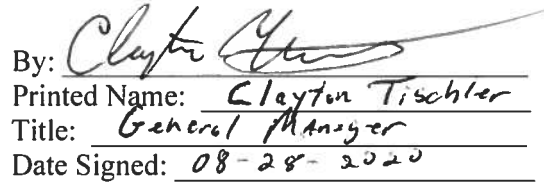 By: Clayton
Printed Name: Clayton Tischler
Title: General Manager
Date Signed: 08-28-2020